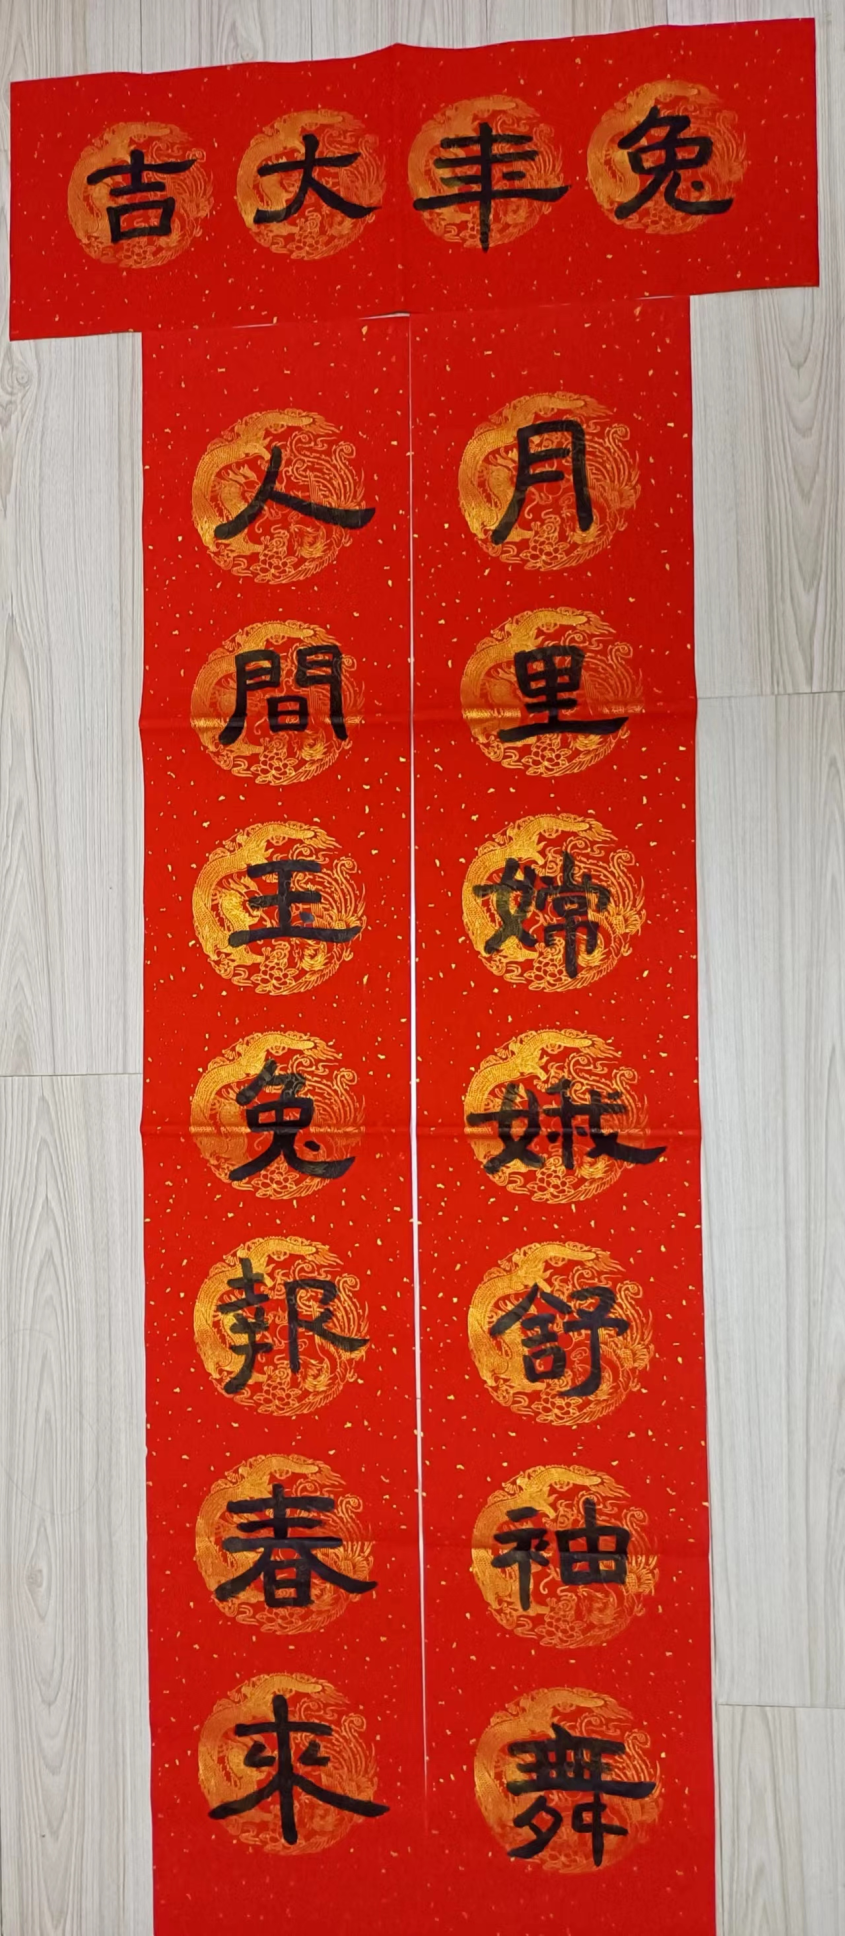 兔年大吉
月里嫦娥舒袖舞
人間玉兔報春來